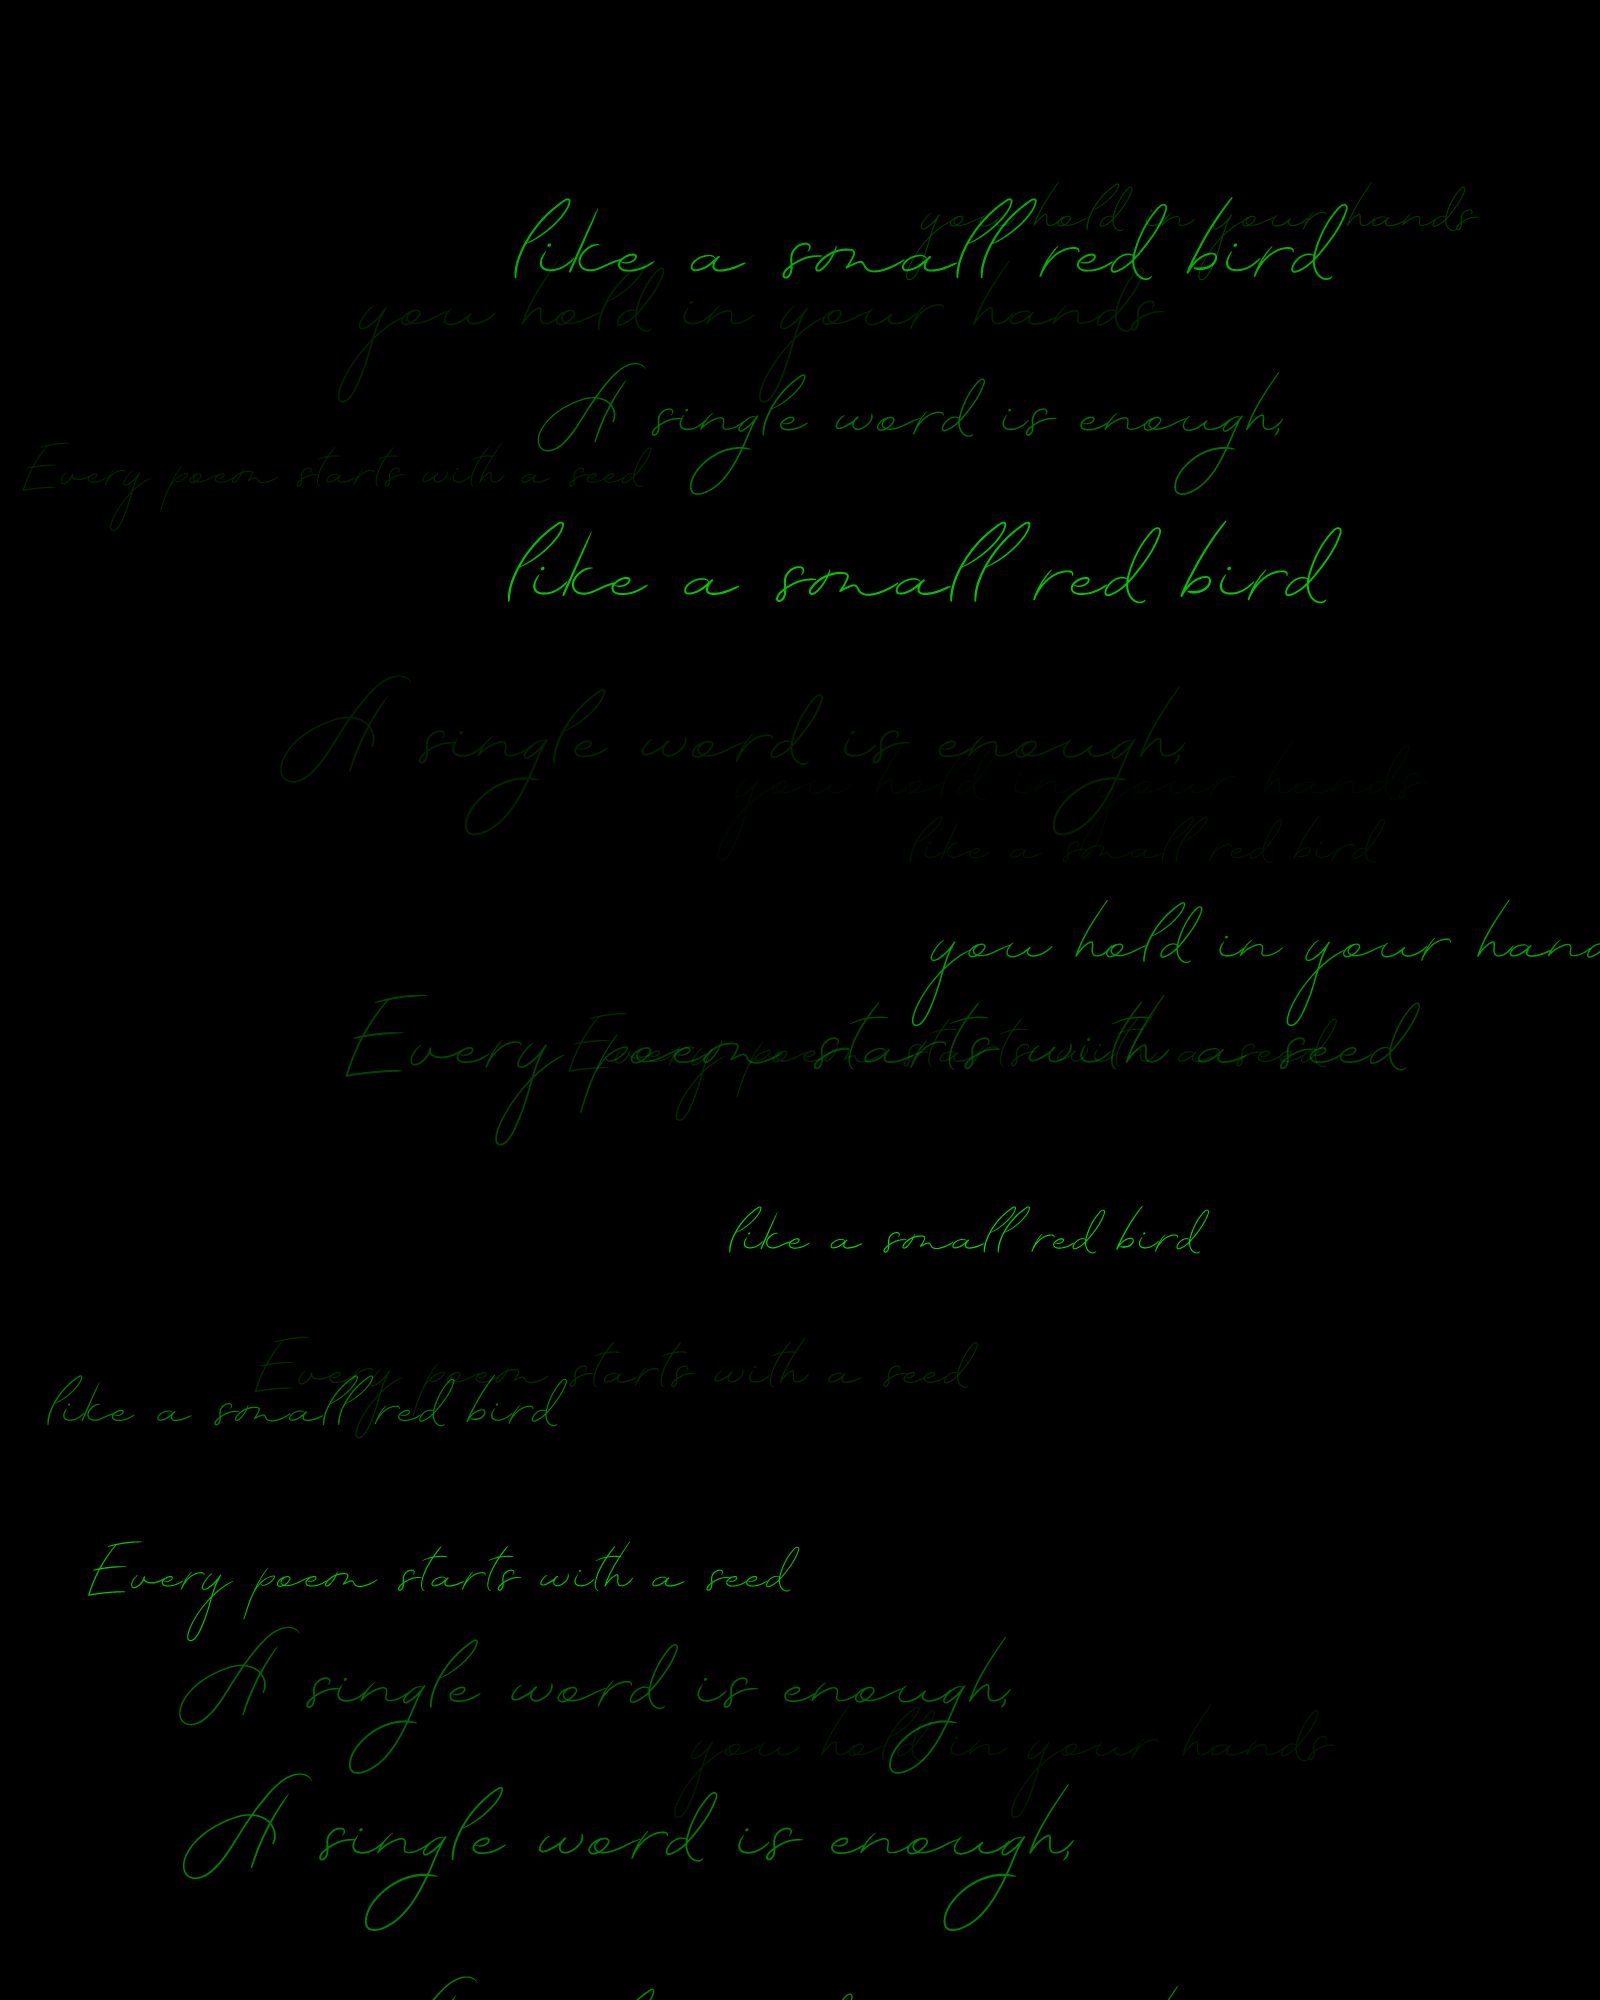 you hold in your hands
like a small red bird
you hold in your hands
A single word is enough,
Every poem starts with a seed
like a small red bird
A single word is enough,
you hold in your hands
like a small red bird
you hold in your hand
Every poem starts with a seed
Every poem starts with a seed
like a small red bird
Every poem starts with a seed
like a small red bird
Every poem starts with a seed
A single word is enough,
you hold in your hands
A single word is enough,